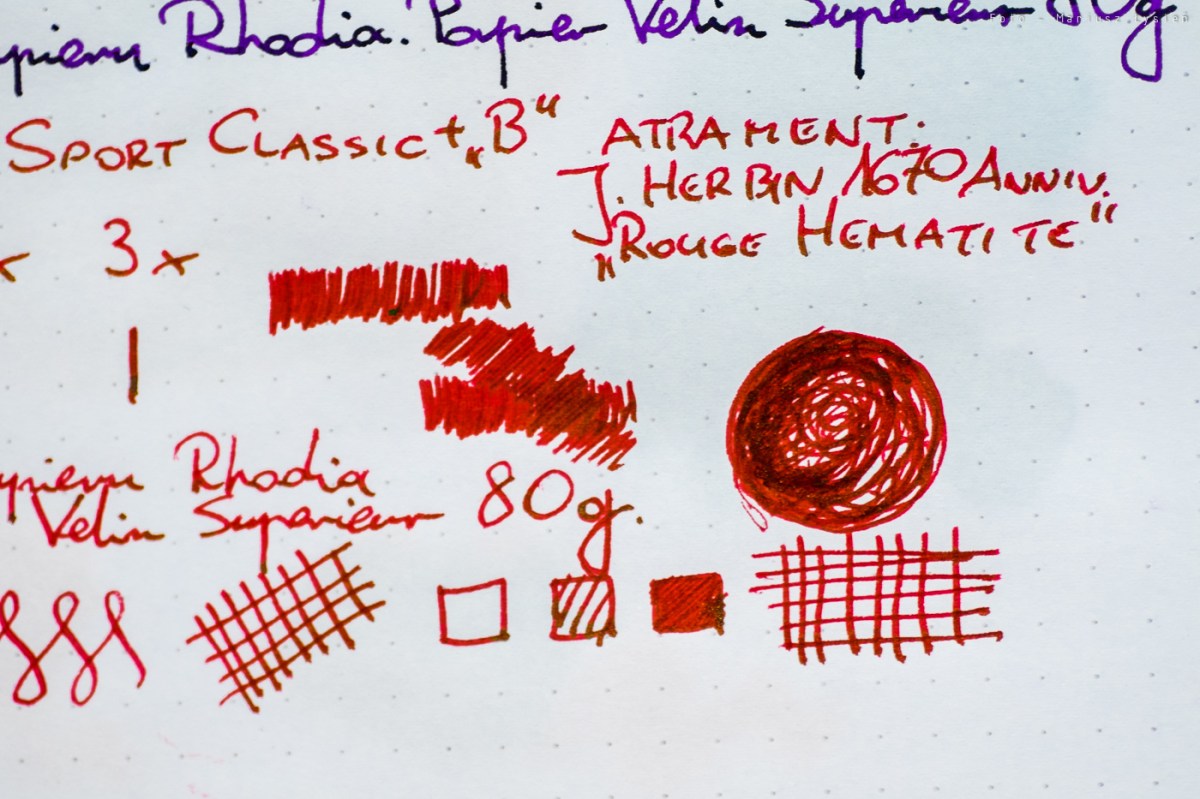 Foto - Mariusz Łysiak
apieru Rhodia. Papier Velin Superieur 80g
Sport Classic + „B“
ATRAMENT:
J. HERBIN 1670 ANNIV.
„ROUGE HEMATITE“
3x
apieru Rhodia
Velin Superieur 80g.